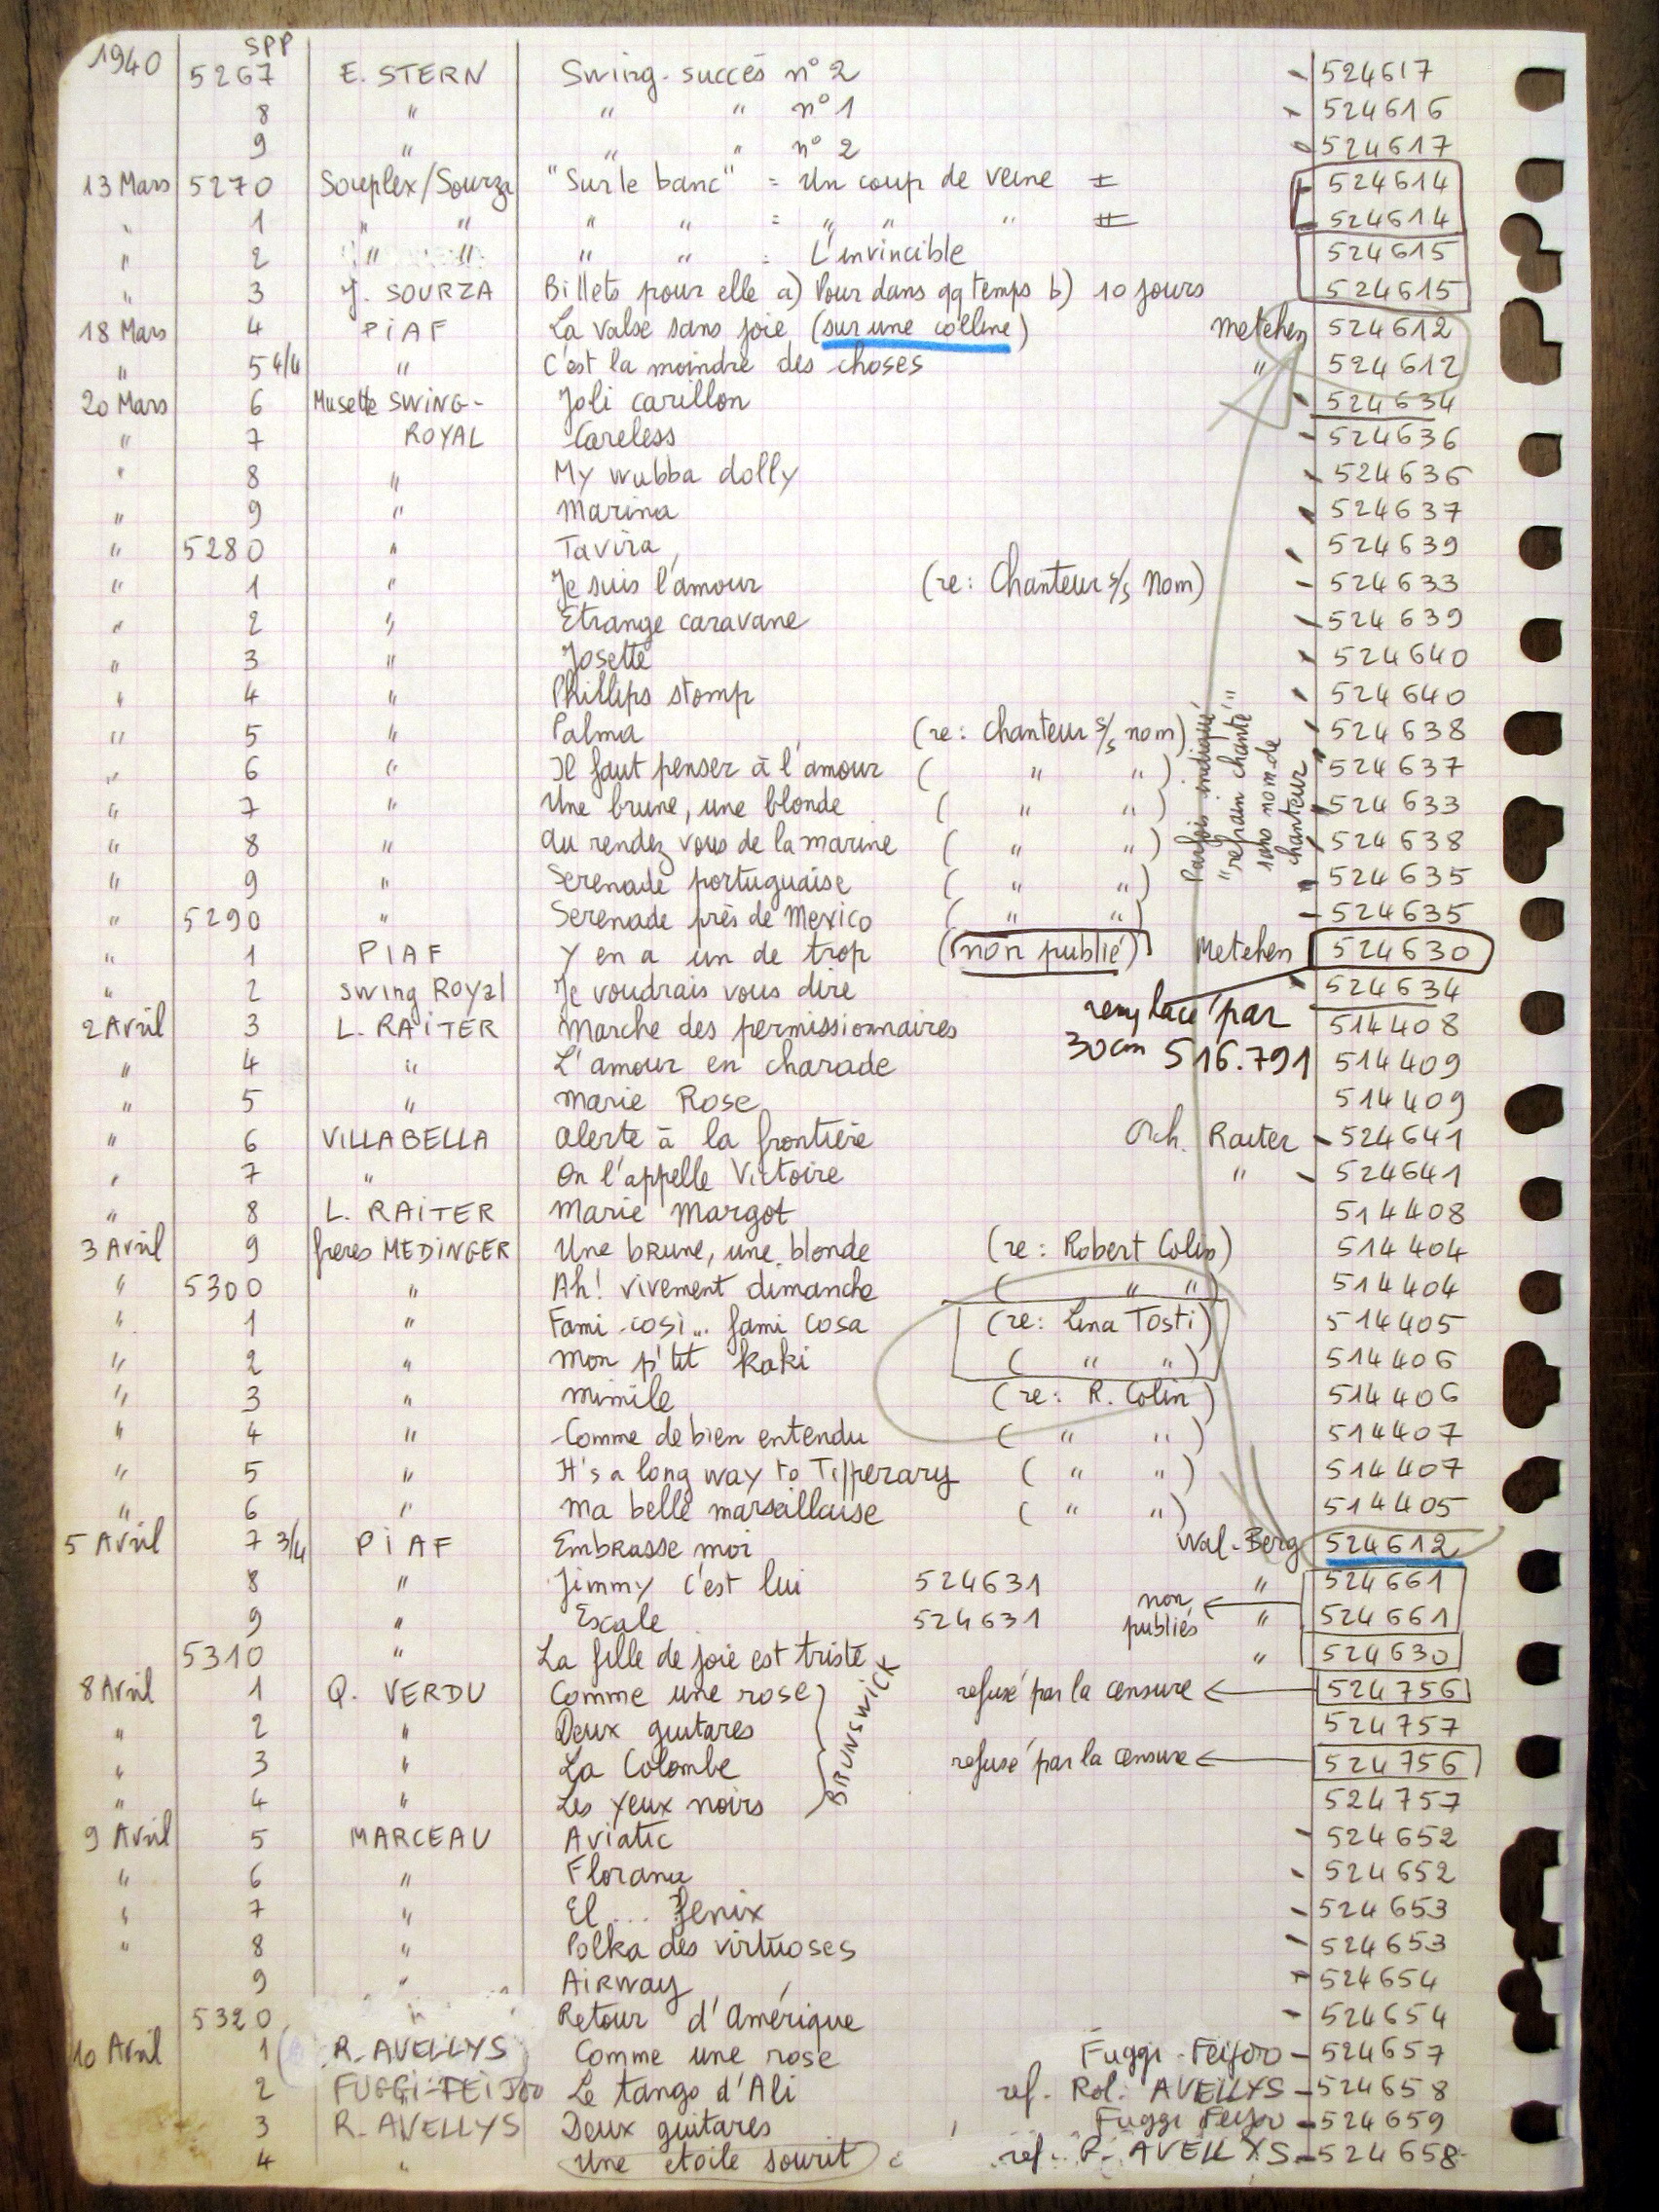 1940 SPP
5267 E. STERN Swing-succès n° 2 - 524617
8 " " " n° 1 - 524616
9 " " " n° 2 - 524617
13 Mars 5270 Souplex/Sourza "Sur le banc" = Un coup de veine I 524614
" 1 " " " " = " " " II 524614
" 2 " " " " = L'invincible 524615
" 3 J. SOURZA Billets pour elle a) Pour dans qq temps b) 10 jours 524615
18 Mars 4 PIAF La valse sans joie (sur une colline) Metehen 524612
" 5 4/4 " C'est la moindre des choses " 524612
20 Mars 6 Musette SWING- Joli carillon - 524634
" 7 ROYAL Careless - 524636
" 8 " My wubba dolly - 524636
" 9 " Marina - 524637
" 5280 " Tavira - 524639
" 1 " Je suis l'amour (re: Chanteur s/s Nom) - 524633
" 2 " Etrange caravane - 524639
" 3 " Josette - 524640
" 4 " Phillips stomp - 524640
" 5 " Palma (re: chanteur s/s nom) - 524638
" 6 " Il faut penser à l'amour ( " " ) - 524637
" 7 " Une brune, une blonde ( " " ) - 524633
" 8 " Au rendez vous de la marine ( " " ) - 524638
" 9 " Serenade portuguaise ( " " ) - 524635
" 5290 " Serenade près de Mexico ( " " ) - 524635
Parfois indiqué
"refrain chanté"
sans nom de
chanteur
" 1 PIAF Y en a un de trop (non publié) Metehen 524630
" 2 Swing Royal Je voudrais vous dire - 524634
remplacé par
30cm 516.791
2 Avril 3 L. RAITER Marche des permissionnaires 514408
" 4 " L'amour en charade 514409
" 5 " Marie Rose 514409
" 6 VILLABELLA Alerte à la frontière Orch. Raiter - 524641
" 7 " On l'appelle Victoire " - 524641
" 8 L. RAITER Marie Margot 514408
3 Avril 9 frères MEDINGER Une brune, une blonde (re: Robert Colin) 514404
" 5300 " Ah! vivement dimanche ( " " ) 514404
" 1 " Fami cosi... fami cosa (re: Lina Tosti) 514405
" 2 " Mon p'tit kaki ( " " ) 514406
" 3 " Mimile (re: R. Colin) 514406
" 4 " Comme de bien entendu ( " " ) 514407
" 5 " It's a long way to Tipperary ( " " ) 514407
" 6 " Ma belle marseillaise ( " " ) 514405
5 Avril 7 3/4 PIAF Embrasse moi Wal-Berg 524612
8 " Jimmy c'est lui 524631 " 524661
9 " Escale 524631 " 524661
non
publiés
5310 " La fille de joie est triste " 524630
8 Avril 1 Q. VERDU Comme une rose refusé par la censure 524756
" 2 " Deux guitares 524757
" 3 " La Colombe refusé par la censure 524756
" 4 " Les yeux noirs 524757
BRUNSWICK
9 Avril 5 MARCEAU Aviatic - 524652
" 6 " - 524652
" 7 " El ... Fenix - 524653
" 8 " Polka des virtuoses - 524653
9 " AIRWAY - 524654
5320 " Retour d'Amérique - 524654
10 Avril 1 R. AVELLYS Comme une rose Fuggi-Feijoo - 524657
2 FUGGI-FEIJOO Le tango d'Ali ref. Rol. AVELLYS - 524658
3 R. AVELLYS Deux guitares Fuggi Feijoo - 524659
4 " Une etoile sourit ref. R. AVELLYS - 524658